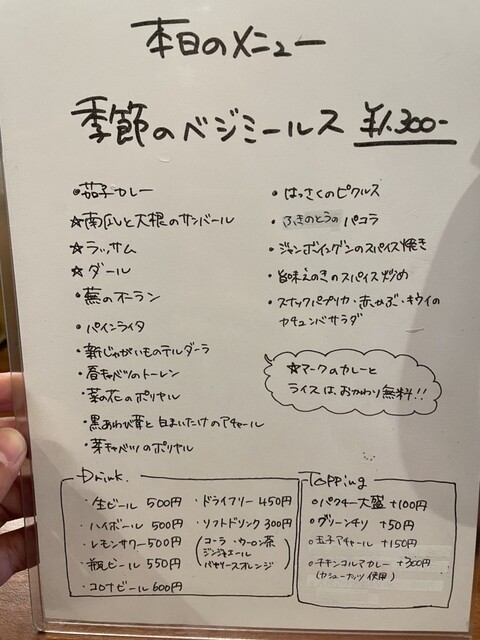 本日のメニュー
季節のベジミールス ¥1.300-
●茄子カレー
☆南瓜と大根のサンバール
☆ラッサム
☆ダール
・蕪のオーラン
・パインライタ
・新じゃがいものテルダーラ
・春キャベツのトーレン
・菜の花のポリヤル
・黒あわび茸と白まいたけのアチャール
・芽キャベツのポリヤル
・はっさくのピクルス
・ふきのとうのパコラ
・ジャンボインゲンのスパイス焼き
・旨味えのきのスパイス炒め
・スナックパプリカ・赤かぶ・キウイの
カチュンバサラダ
☆マークのカレーと
ライスはおかわり無料!!
Drink.
・生ビール 500円
・ハイボール 500円
・レモンサワー 500円
・瓶ビール 550円
・コロナビール 600円
・ドライフリー 450円
・ソフトドリンク 300円
(コーラ・ウーロン茶
ジンジャエール
バヤリースオレンジ)
Topping
○パクチー大盛 +100円
○グリーンチリ +50円
○玉子アチャール +150円
○チキンコルマカレー +300円
(カシューナッツ使用)